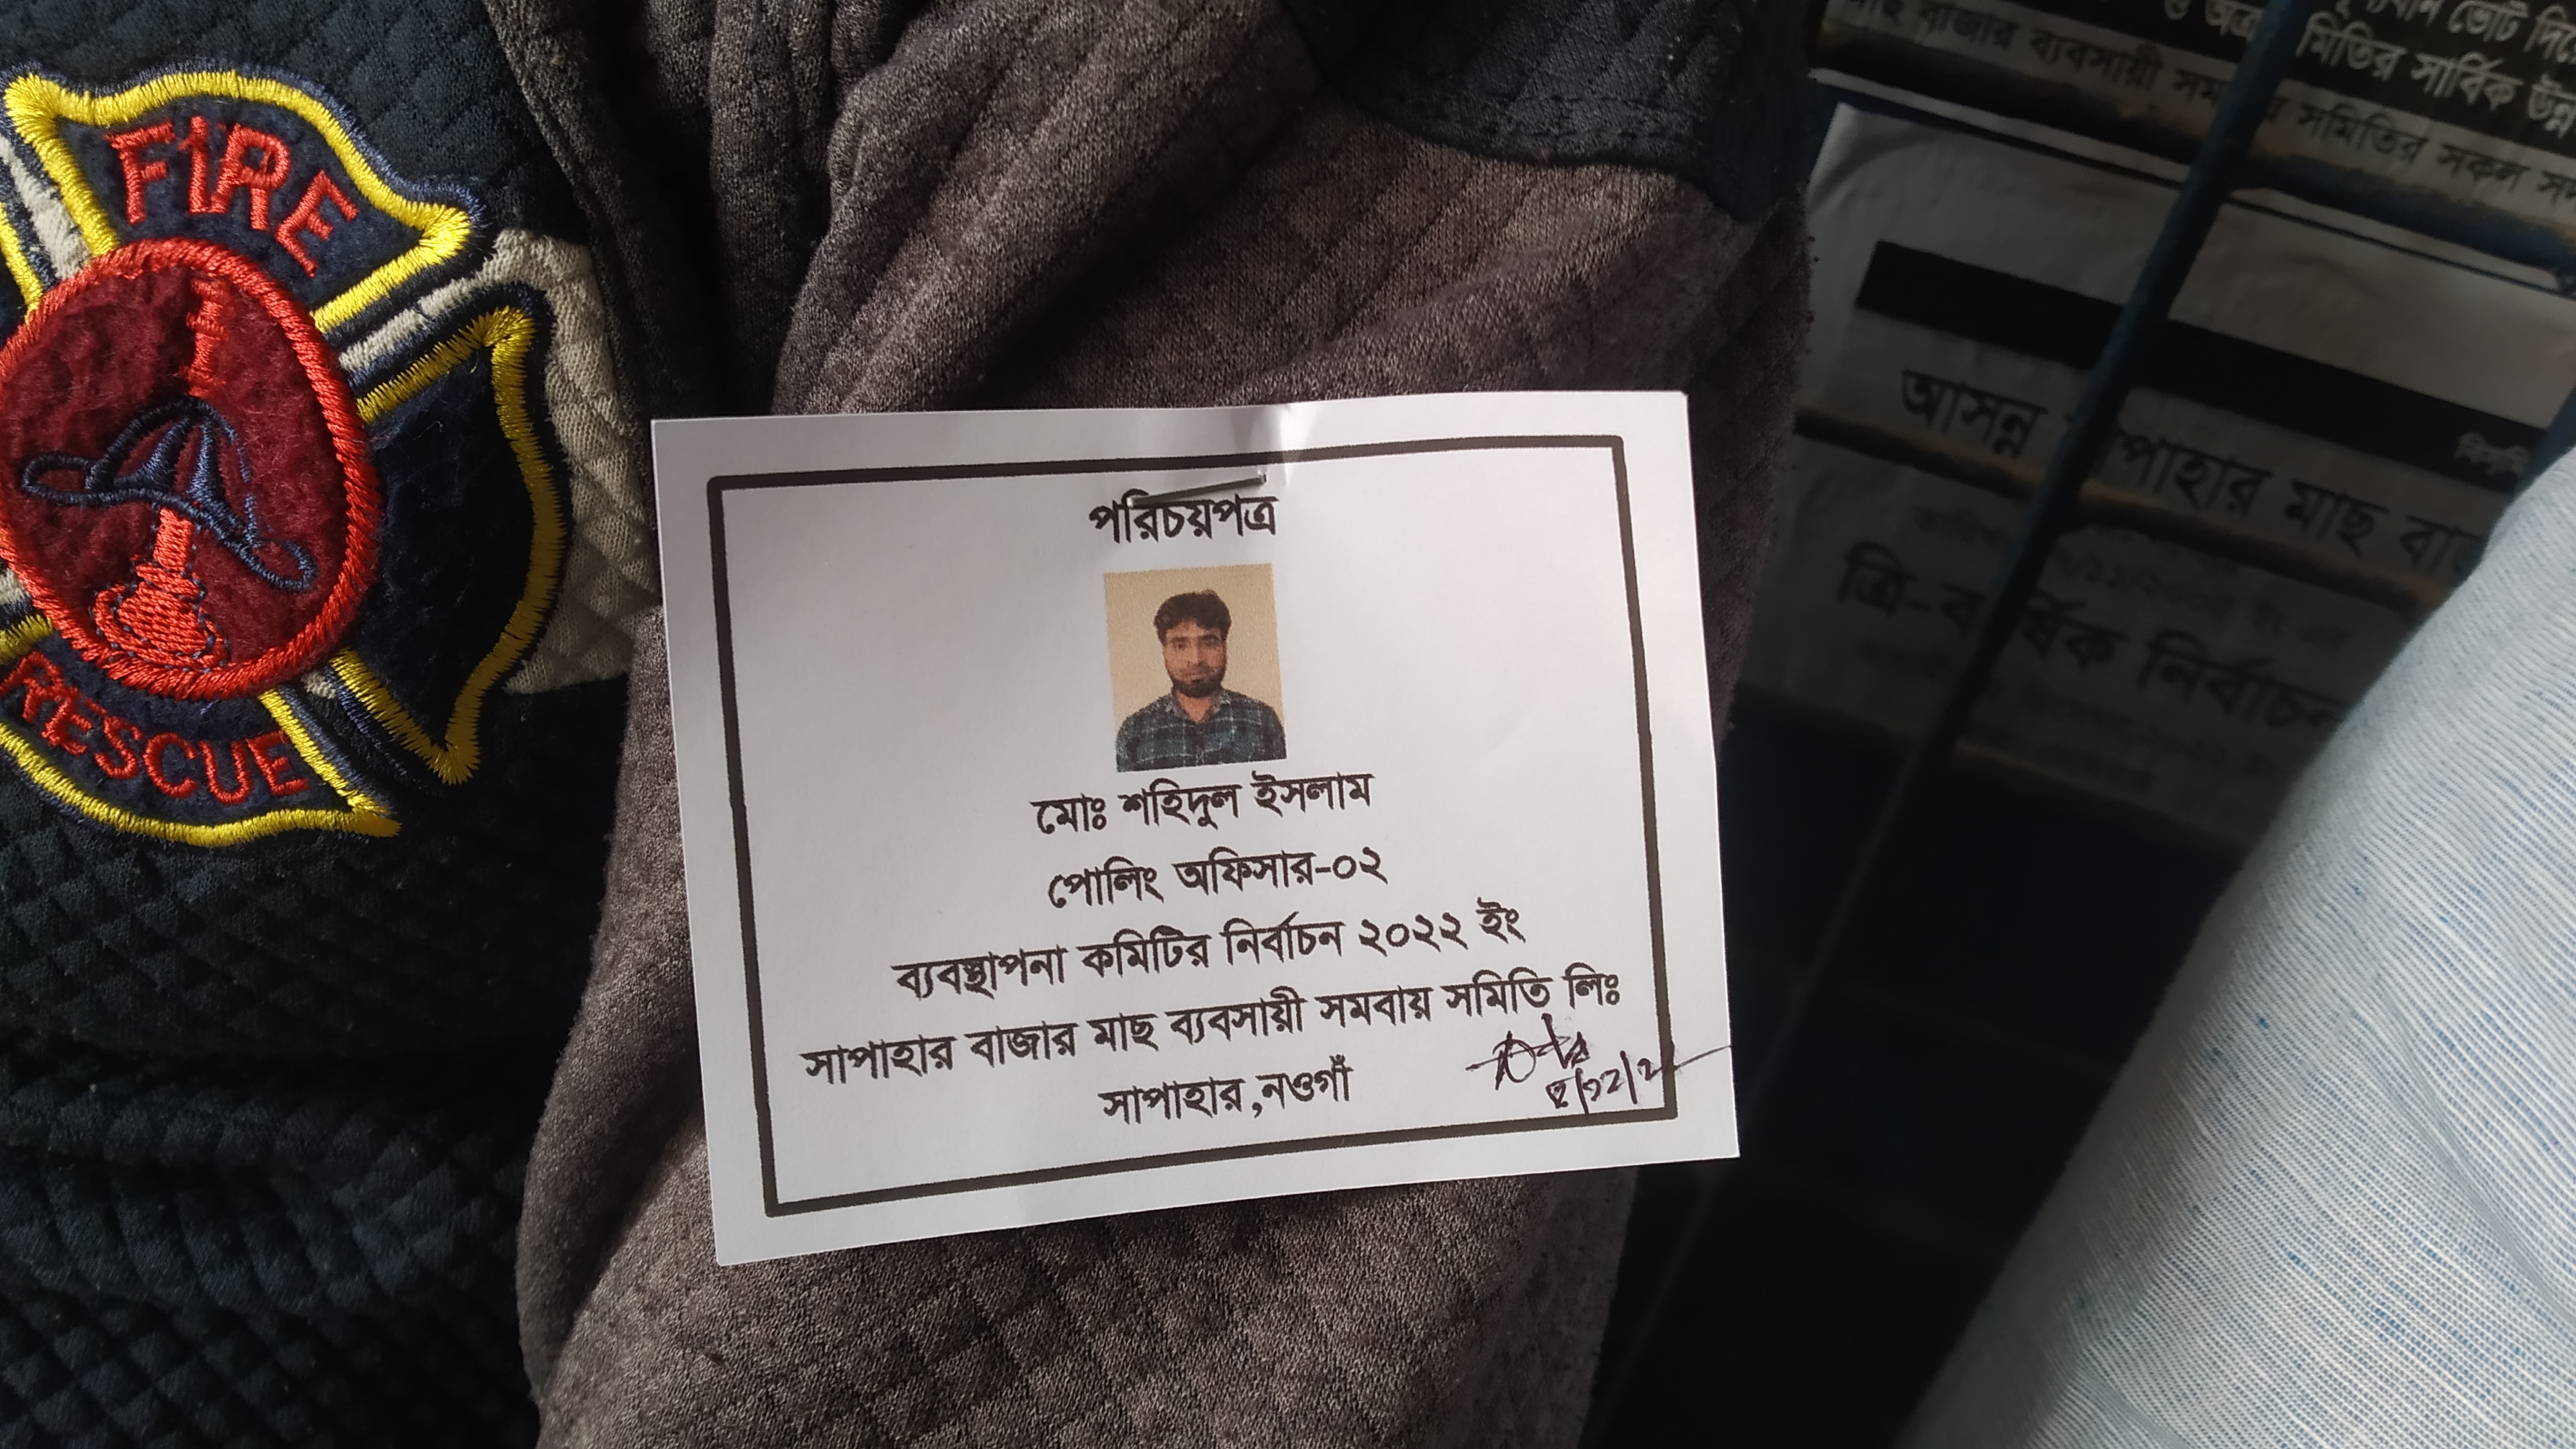 FIRE
RESCUE
পরিচয়পত্র
মোঃ শহিদুল ইসলাম
পোলিং অফিসার-০২
ব্যবস্থাপনা কমিটির নির্বাচন ২০২২ ইং
সাপাহার বাজার মাছ ব্যবসায়ী সমবায় সমিতি লিঃ
সাপাহার,নওগাঁ
ভোট
মিতির সার্বিক
মাছ বাজার ব্যবসায়ী
সমিতির সকল
আসন্ন সাপাহার মাছ
ত্রি-বার্ষিক নির্বাচন